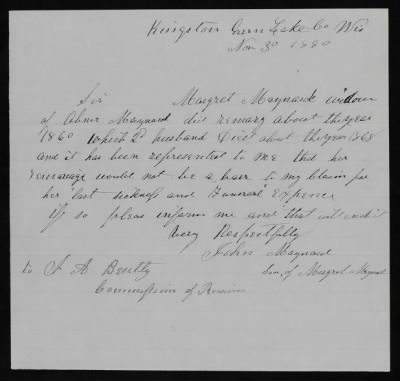 Kingston Green Lake Co Wis
Nov 30 1880
Sir Margret Maynard widow
of Abner Maynard did remary about the year
1860 which 2d husband Died about the year 1868
and it has been represented to me that her
remariage would not be a bar to my claim for
her last sickness and Funeral Expence
if so pleas inform me and that will end it
Very Respectfully
John Maynard
Son, of Margret Maynard
to J A Bently
Commissioner of Pension